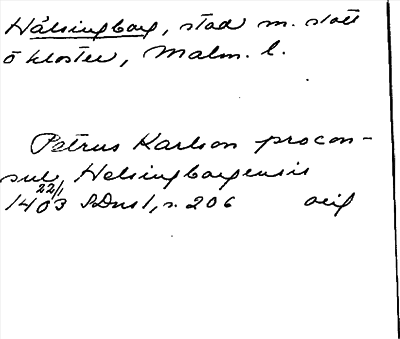 Hälsingborg, stad m. slott
o kloster, Malm. l.
Petrus Karlson procon-
sul Helsingborgensis
22/1
1403 SDns 1, s. 206 orig